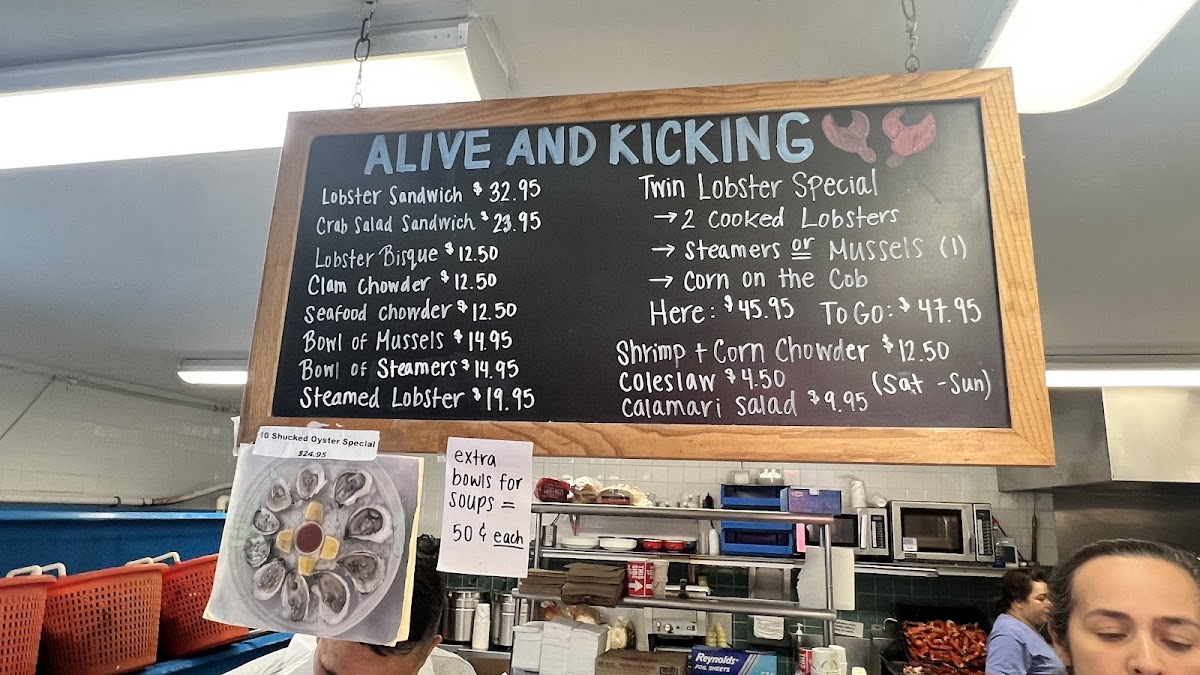 ALIVE AND KICKING
Lobster Sandwich $32.95
Crab Salad Sandwich $23.95
Lobster Bisque $12.50
Clam Chowder $12.50
Seafood chowder $12.50
Bowl of Mussels $14.95
Bowl of Steamers $14.95
Steamed Lobster $19.95
Twin Lobster Special
→ 2 Cooked Lobsters
→ Steamers or Mussels (1)
→ Corn on the Cob
Here: $45.95 To Go: $47.95
Shrimp + Corn Chowder $12.50
Coleslaw $4.50 (Sat - Sun)
Calamari Salad $9.95
10 Shucked Oyster Special
$24.95
extra
bowls for
soups =
50 ¢ each
Reynolds
FOIL SHEETS